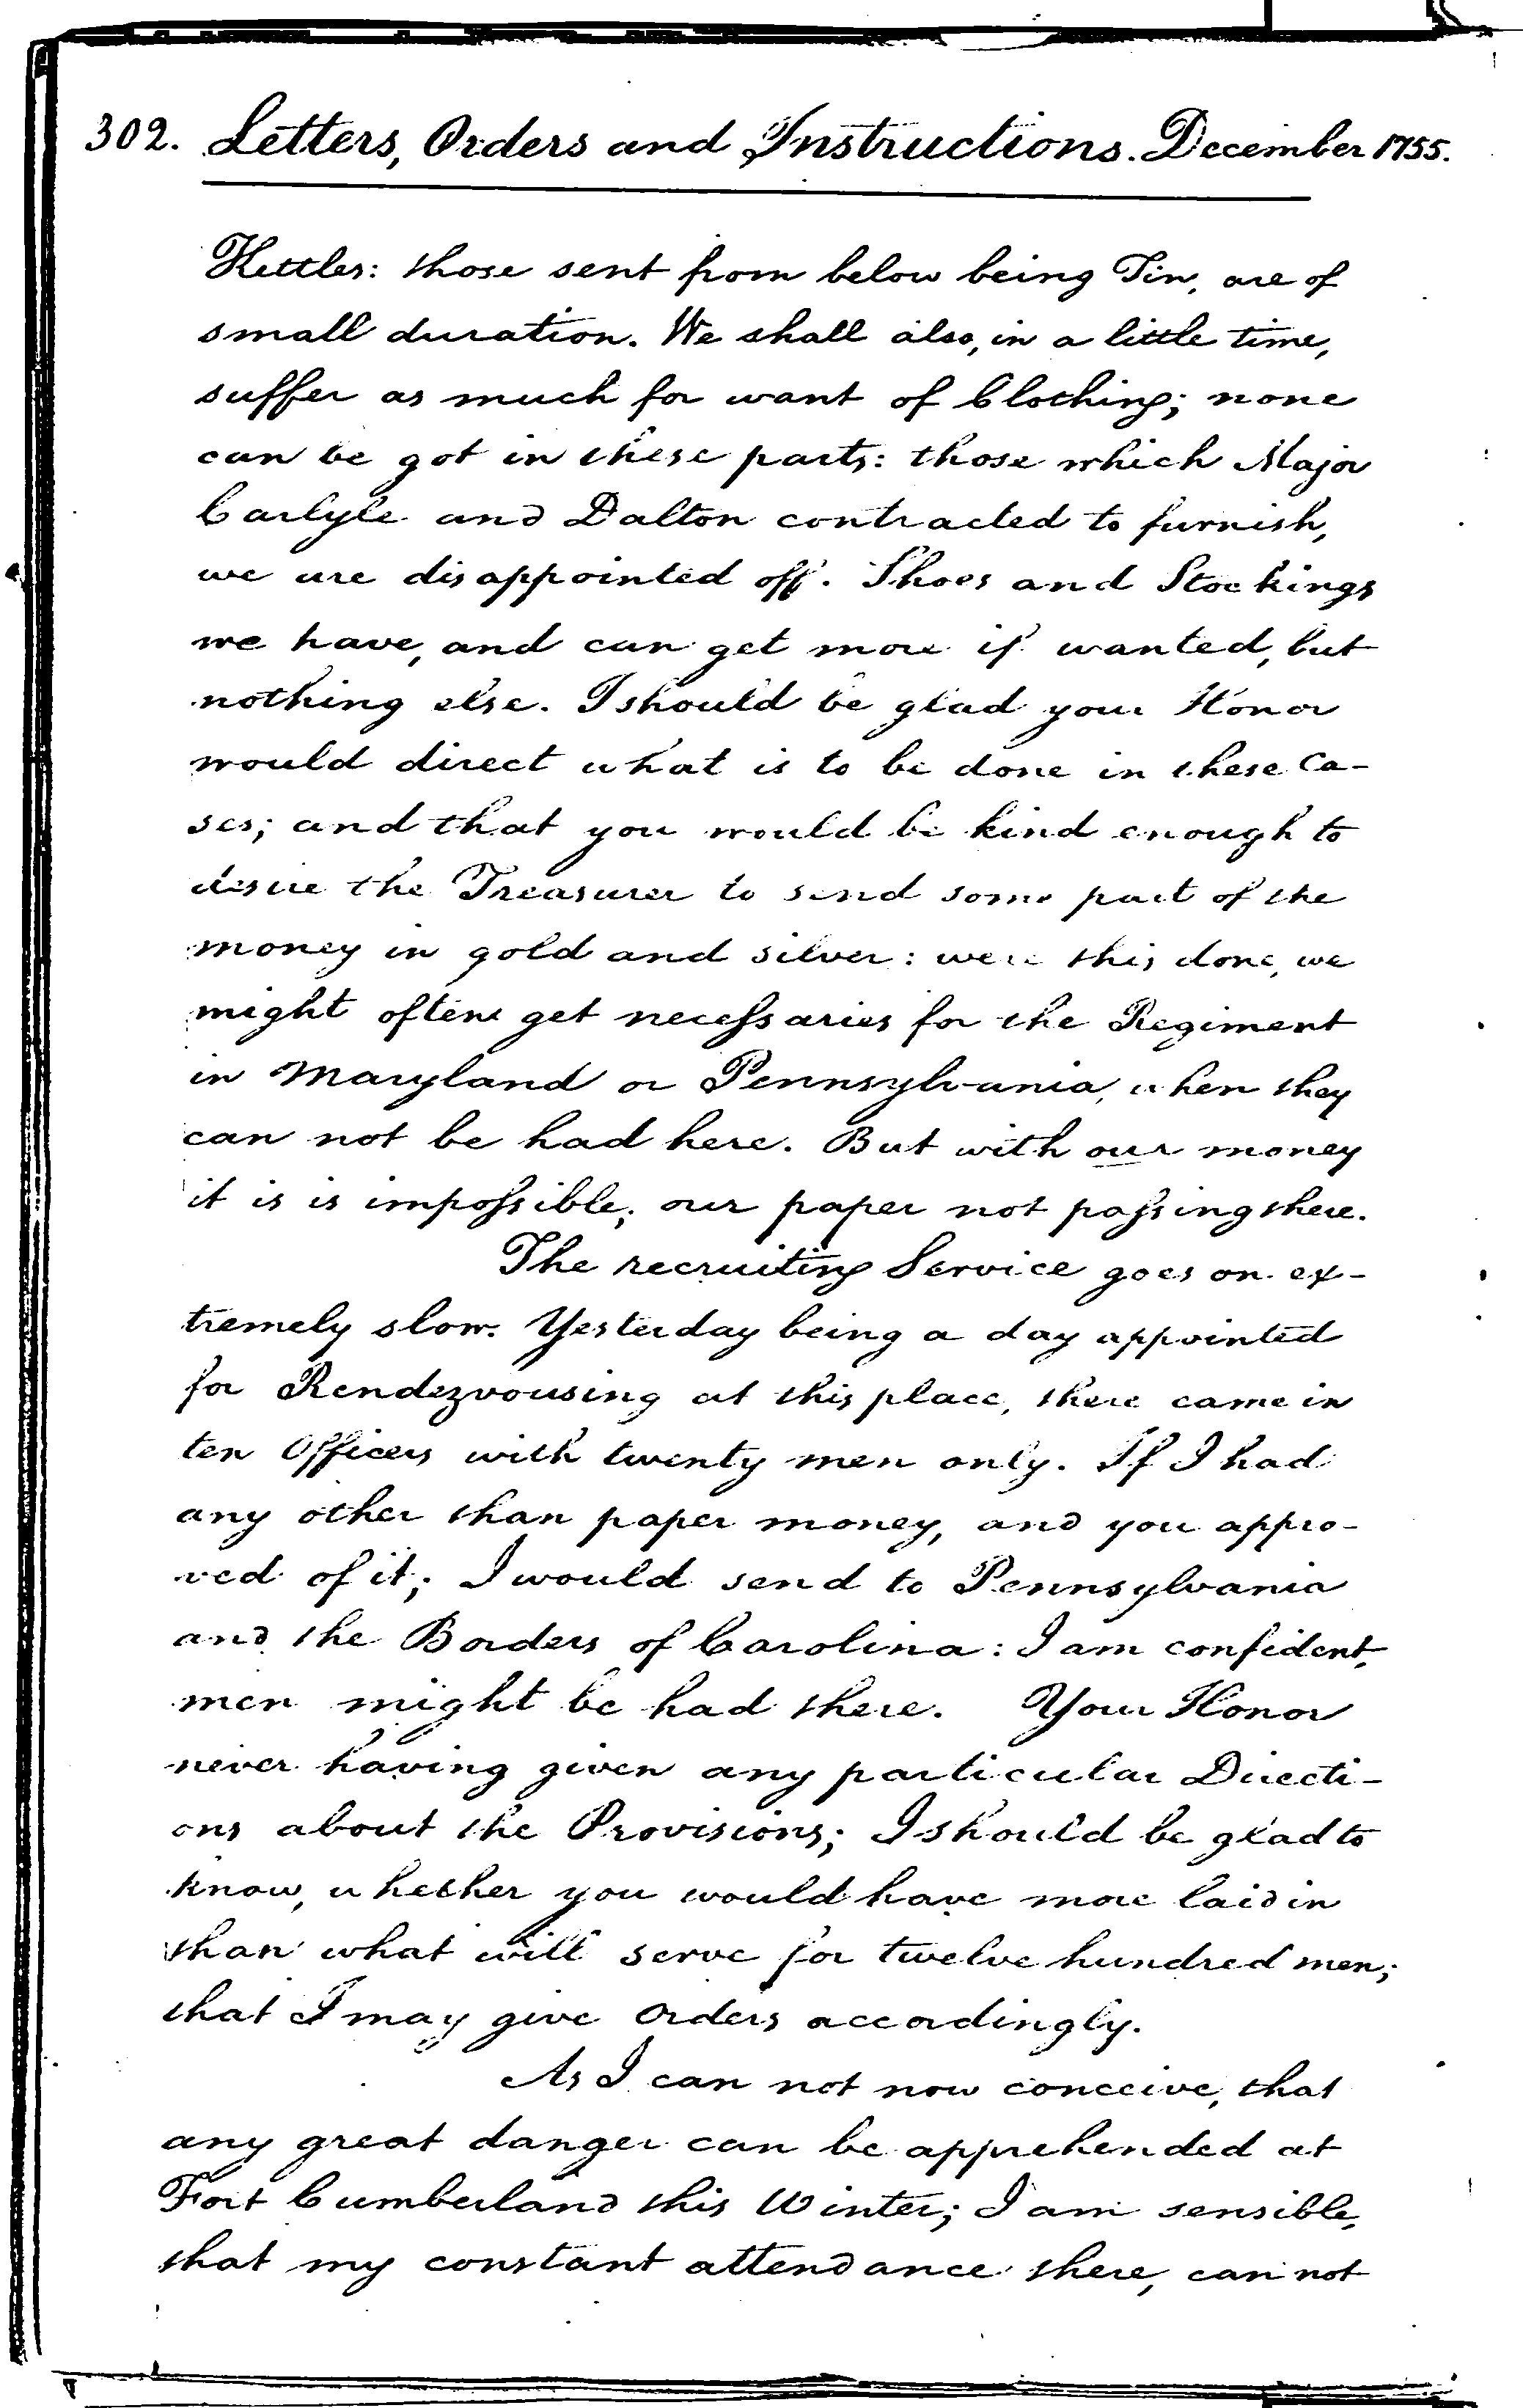 302. Letters, Orders and Instructions. December 1755.
Kettles: those sent from below being Tin, are of
small duration. We shall also, in a little time,
suffer as much for want of Clothing; none
can be got in these parts: those which Major
Carlyle and Dalton contracted to furnish,
we are disappointed off. Shoes and Stockings
we have, and can get more if wanted, but
nothing else. I should be glad your Honor
would direct what is to be done in these Ca-
ses; and that you would be kind enough to
desire the Treasurer to send some part of the
money in gold and silver: were this done, we
might often get necessaries for the Regiment
in Maryland or Pennsylvania, when they
can not be had here. But with our money
it is is impossible; our paper not passing there.
The recruiting Service goes on ex-
tremely slow. Yesterday being a day appointed
for Rendezvousing at this place, there came in
ten Officers with twenty men only. If I had
any other than paper money, and you appro-
ved of it; I would send to Pennsylvania
and the Borders of Carolina: I am confident,
men might be had there. Your Honor
never having given any particular Directi-
ons about the Provisions; I should be glad to
know, whether you would have more laid in
than what will serve for twelve hundred men;
that I may give Orders accordingly.
As I can not now conceive, that
any great danger can be apprehended at
Fort Cumberland this Winter; I am sensible,
that my constant attendance there, can not